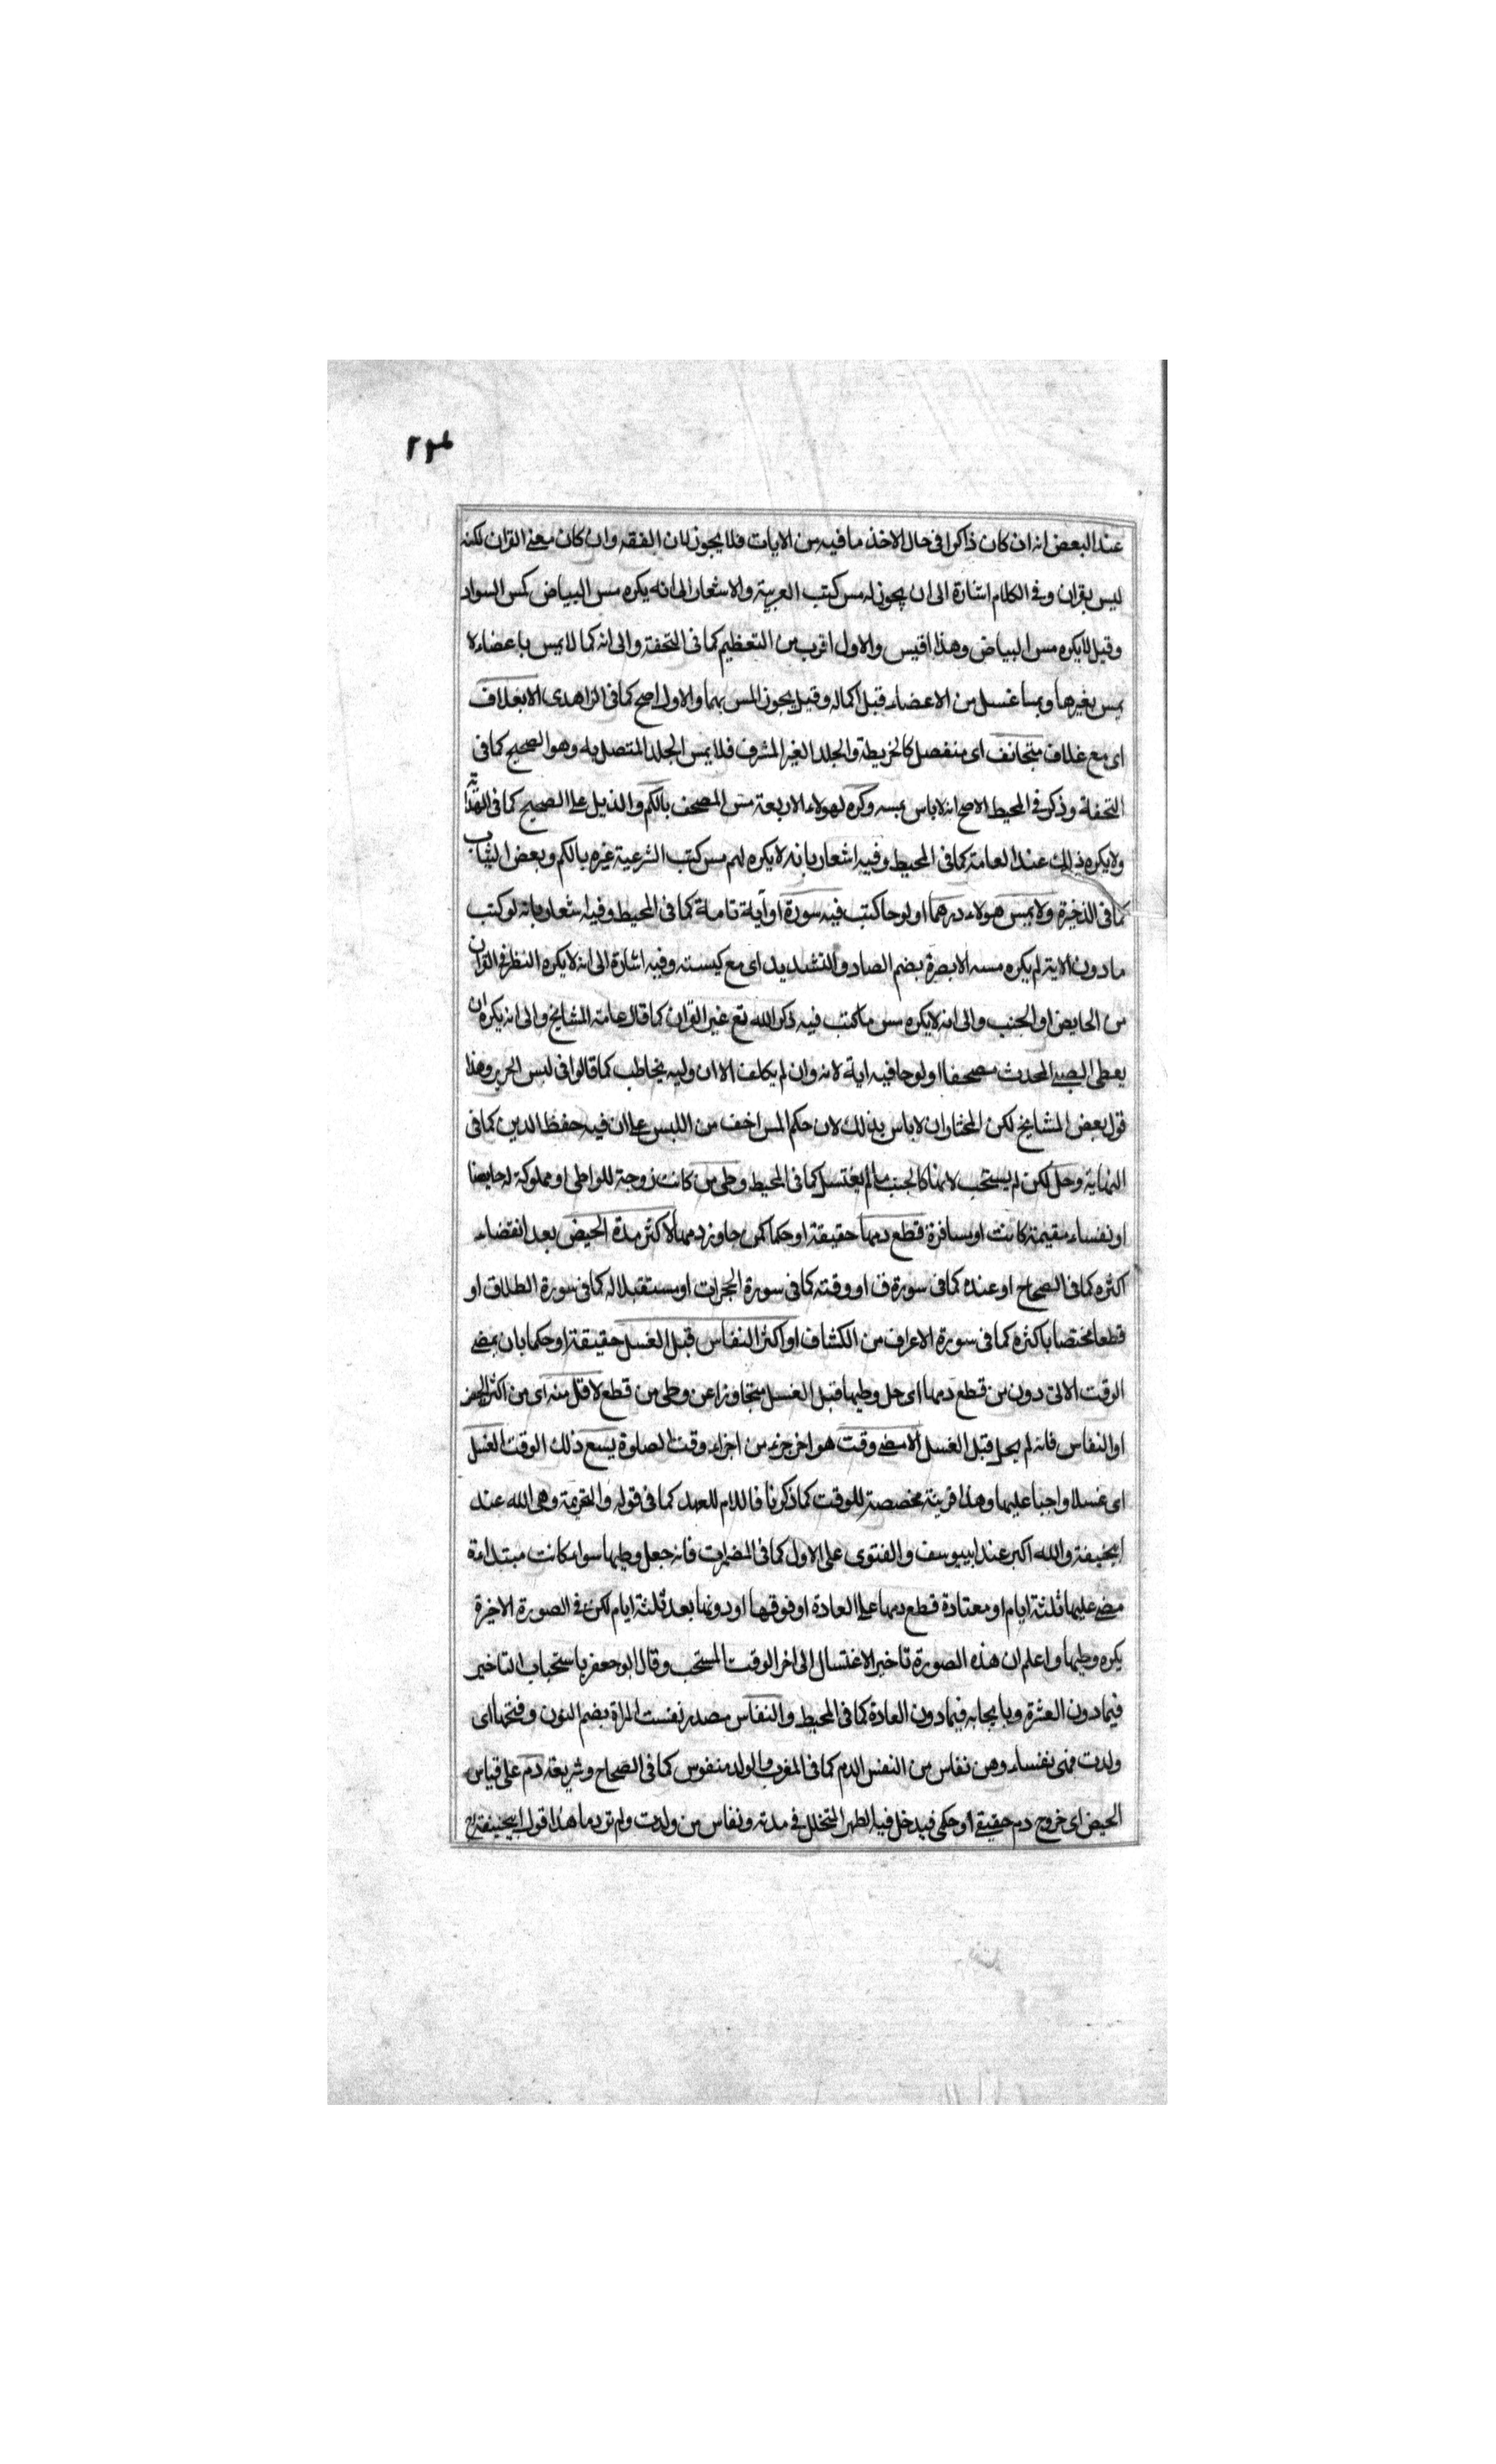 عند البعض انه ان كان ذاكرا فى حال الاخذ ما فيه من الايات فلا يجوز لان الفقه وان كان معنى القران لكنه
ليس بقران وفى الكلام اشارة الى ان يجوز له مس كتب العربية والاشعار الى انه يكره مس البياض كمس السواد
وقيل لايكره مس البياض وهذا اقيس والاول اقرب من التعظيم كما فى التحفة والى انه كما لا يمس باعضاءه لا
يمس بغيرها وبما غسل من الاعضاء قبل اكماله وقيل يجوز المس بهما والاول اصح كما فى الزاهدى الا بغلاف
اى مع غلاف متجانف اى منفصل كالخريطة والجلد الغير المشرف فلا يمس الجلد المتصل به وهو الصحيح كما فى
التحفة وذكر فى المحيط الاصح انه لاباس بمسه وكره لهولاء الاربعة مس المصحف بالكم والذيل على الصحيح كما فى الهداية
ولا يكره ذلك عند العامة كما فى المحيط وفيه اشعار بانه لا يكره لهم مس كتب الشرعية غيره بالكم وبعض الثياب
كما فى الذخيرة ولا يمس هولاء درهما او لوحا كتب فيه سورة او آية تامة كما فى المحيط وفيه اشعار بانه لو كتب
ما دون الاية لم يكره مسه الا بصرة بضم الصاد والتشديد اى مع كيسته وفيه اشارة الى انه لا يكره النظر فى القران
من الحايض او الجنب والى انه لا يكره مس ما كتب فيه ذكر الله تع غير القران كما قال عامة المشايخ والى انه يكره ان
يعطى الصبى المحدث مصحفا او لوحا فيه اية لانه وان لم يكلف الا ان وليه يخاطب كما قالوا فى لبس الحرير وهذا
قول بعض المشايخ لكن المختار ان لا باس بذلك لان حكم المس اخف من اللبس على ان فيه حفظ الدين كما فى
النهاية وحل لكن لم يستحب لانها كالجنب ما لم يغتسل كما فى المحيط وطى من كانت زوجة للواطى او مملوكة له حايضا
او نفساء مقيمة كانت او مسافرة قطع دمها حقيقة او حكما كمن جاوز دمها لاكثر مدة الحيض بعد انقضاء
اكثره كما فى الصحاح او عنده كما فى سورة ق او وقته كما فى سورة الحجرات او مستقبلا له كما فى سورة الطلاق او
قطعا مختصا باكثره كما فى سورة الاعراف من الكشاف او اكثر النفاس قبل الغسل حقيقة او حكما بان يمضى
الوقت الاتى دون من قطع دمها اى حل وطيها قبل الغسل متجاوزا عن وطى من قطع لاقل منه اى من اكثر الحيض
او النفاس فانه لم يحل قبل الغسل الا بمضى وقت هو اخر جزء من اجزاء وقت الصلوة يسع ذلك الوقت الغسل
اى غسلا واجبا عليها وهذا قرينة مخصصة للوقت كما ذكرنا فاللام للعهد كما فى قوله والتحريمة وهى الله عند
ابيحنيفة والله اكبر عند ابييوسف والفتوى على الاول كما فى المضمرات فانه جعل وطيها سواء كانت مبتداءة
مضى عليها ثلثة ايام او معتادة قطع دمها على العادة او فوقها او دونها بعد ثلثة ايام لكن فى الصورة الاخيرة
يكره وطيها واعلم ان هذه الصورة تاخير الاغتسال الى اخر الوقت المستحب وقال ابو جعفر باستحباب التاخير
فيما دون العشرة وبايجابه فيما دون العادة كما فى المحيط والنفاس مصدر نفست المراة بضم النون وفتحها اى
ولدت فهى نفساء وهن نفاس من النفس الدم كما فى المغرب والولد منفوس كما فى الصحاح وشريعة دم على قياس
الحيض اى خروج دم حقيقى او حكمى فيدخل فيه الطهر المتخلل فى مدته ونفاس من ولدت ولم تر دما هذا قول ابيحنيفة